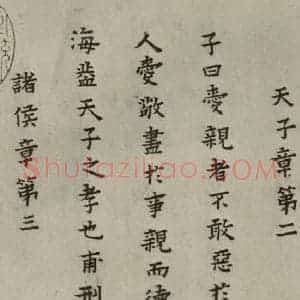 天子章第二
子曰愛親者不敢惡於
人愛敬盡於事親而德
海蓋天子之孝也甫刑
諸侯章第三
Shufaziliao.COM